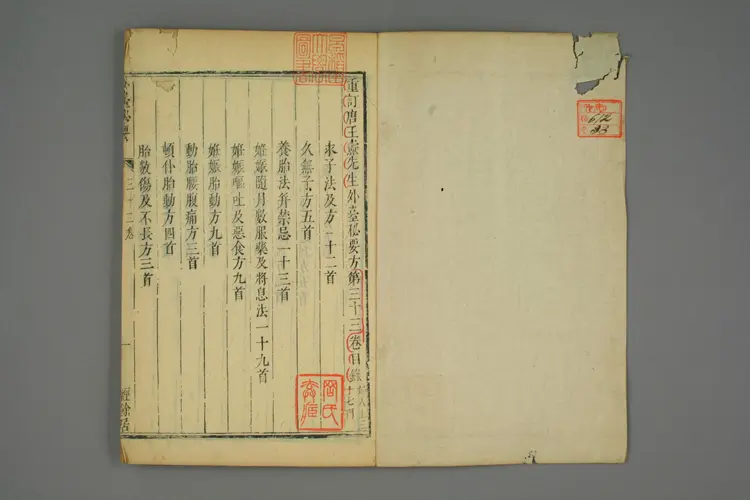 重訂唐王燾先生外臺秘要方第三十三卷目錄
求子法及方一十二首
久無子方五首
養胎法并禁忌一十三首
妊娠隨月數服藥及將息法一十九首
妊娠嘔吐及惡食方九首
妊娠胎動方九首
動胎腰腹痛方三首
頓仆胎動方四首
胎數傷及不長方三首
三十三卷
一
經餘居